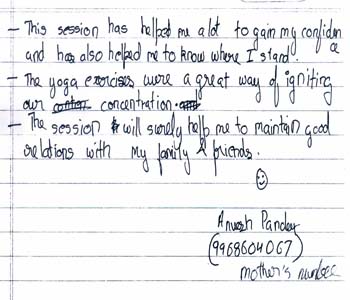 - This session has helped me a lot to gain my confidence
and has also helped me to know where I stand.
- The yoga exercises were a great way of igniting
our concentration.
- The session will surely help me to maintain good
relations with my family & friends.
☺
Anvesh Pandey
(9968604067)
mother's number